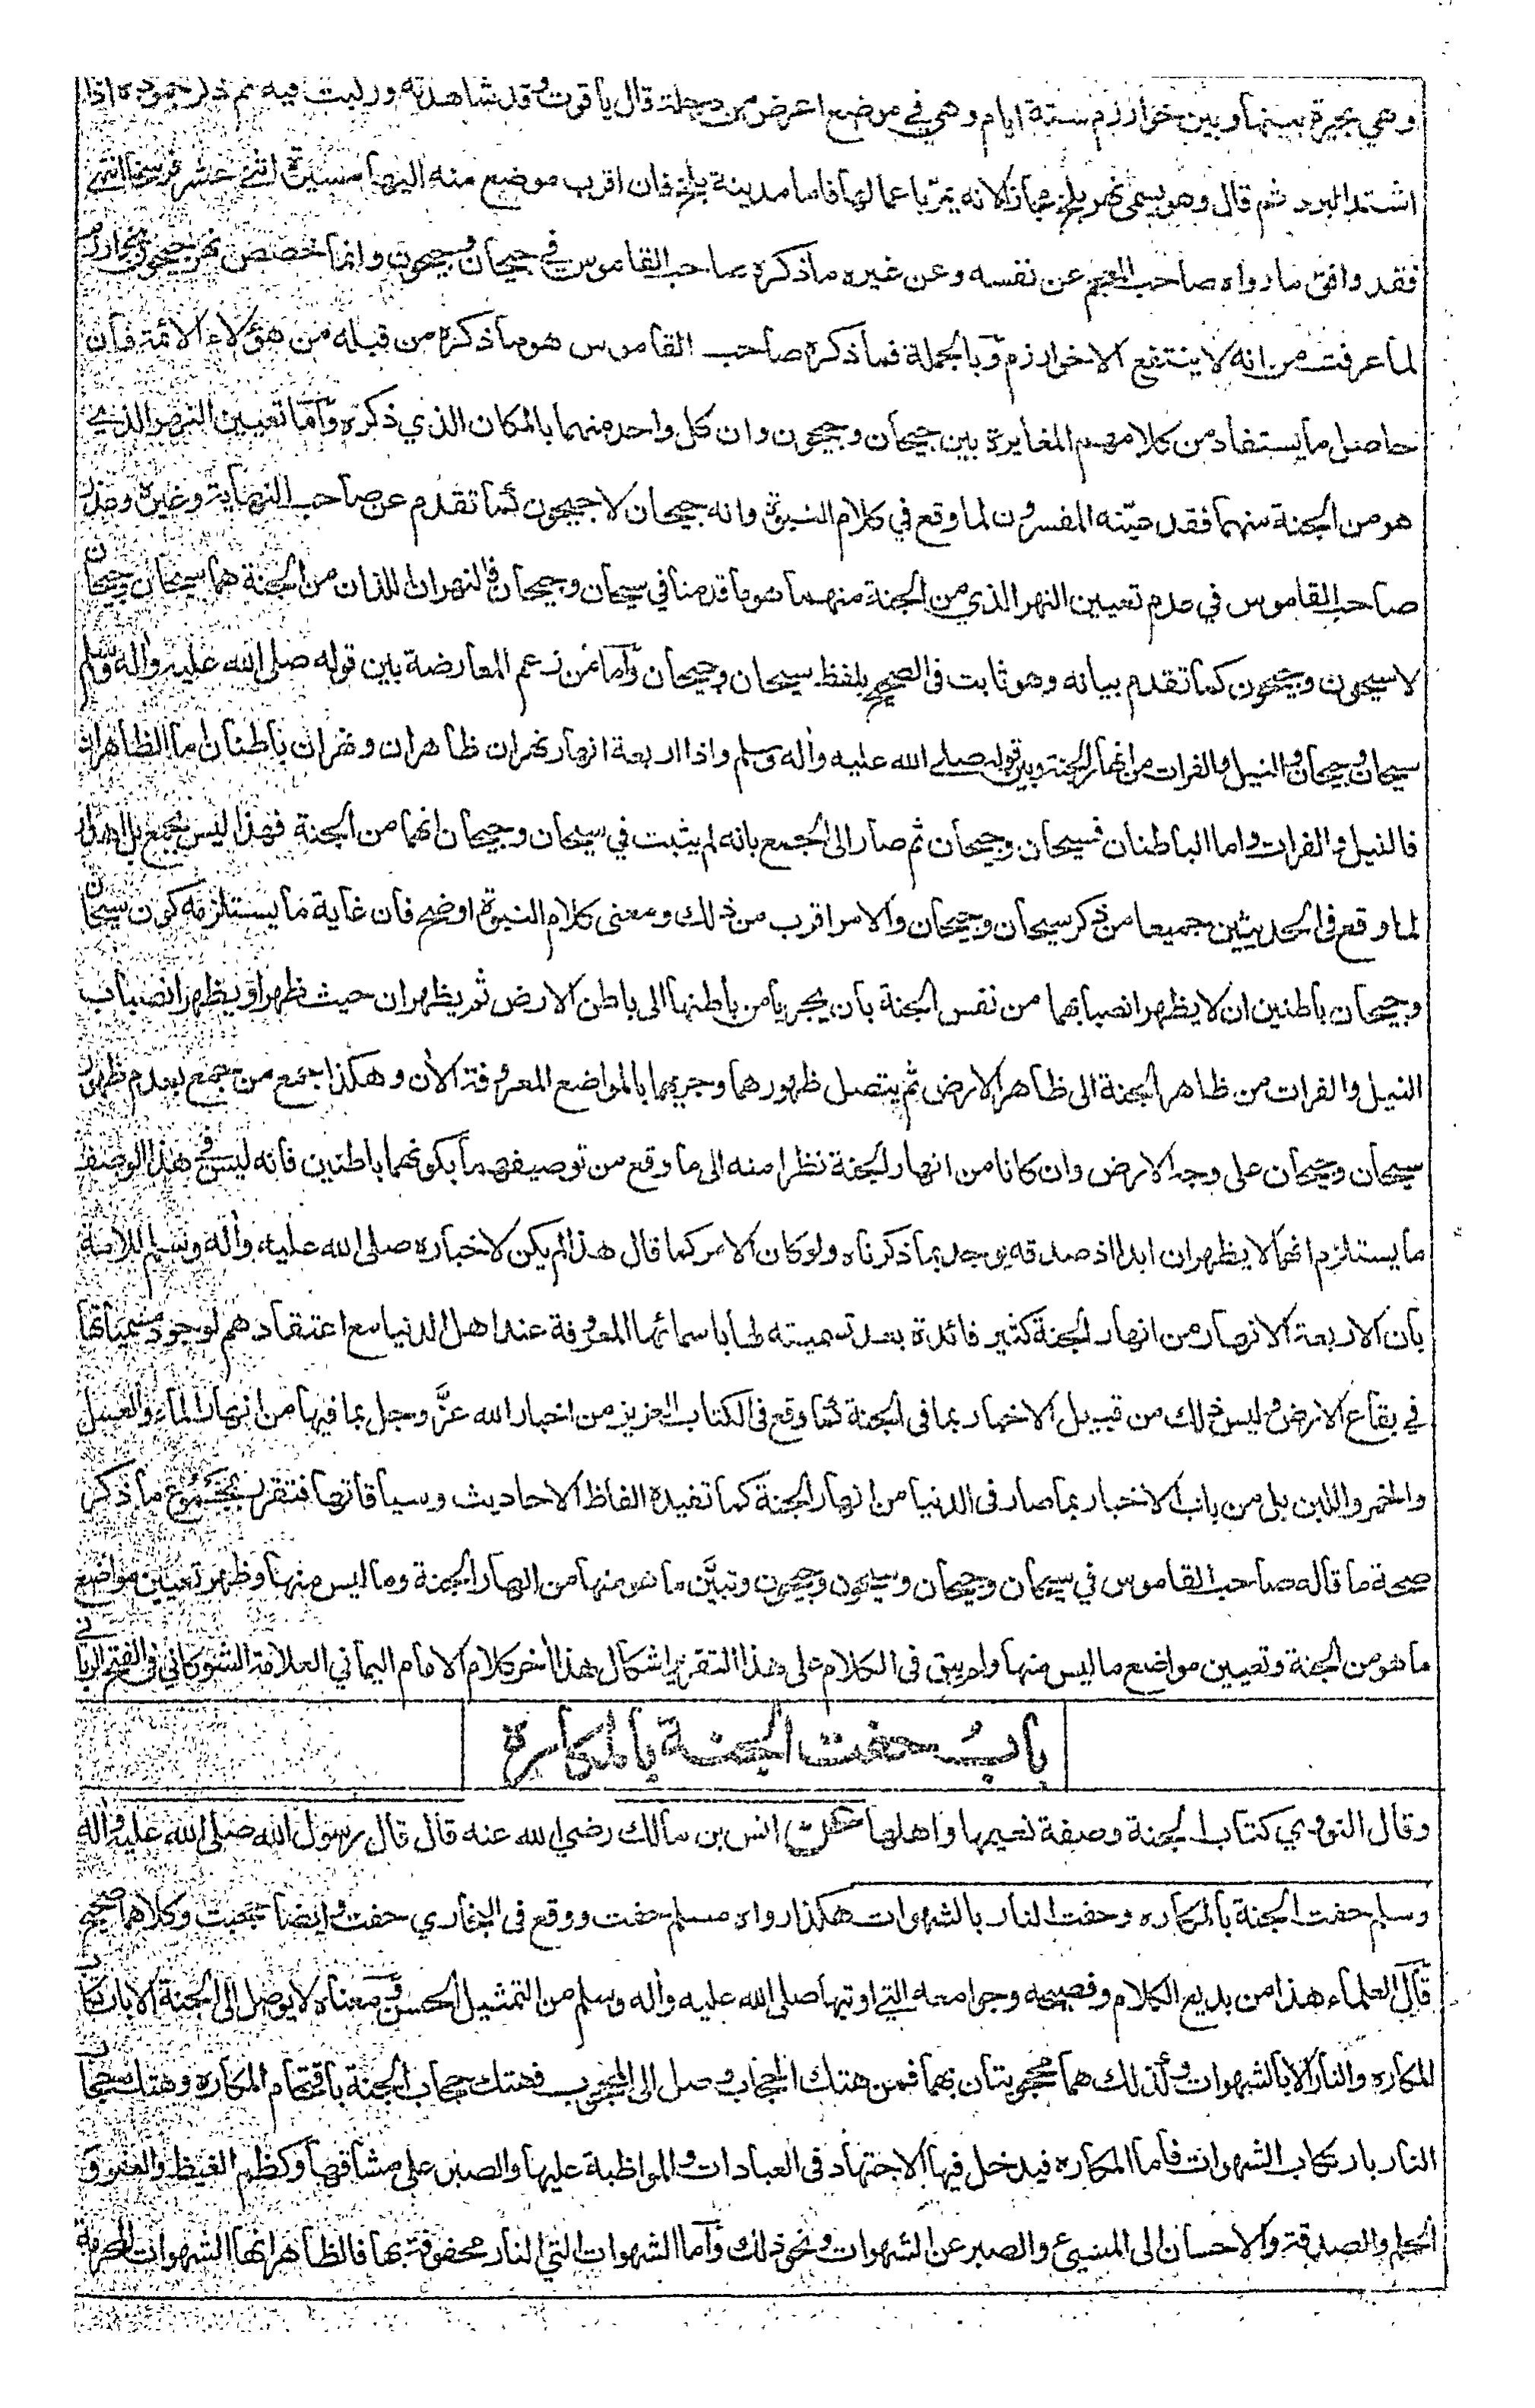 وهي بحيرة بينها وبين خوارزم ستة ايام وهي في موضع اعرض من دجلة قال ياقوت وقد شاهدته وركبت فيه ثم ذكر جموده اذا
اشتد البرد ثم قال وهو يسمى نهر بلخ مجازا لانه يمر باعمالها فاما مدينة بلخ فان اقرب موضع منه اليها مسيرة اثنى عشر فرسخا انتهى
فقد وافق ما رواه صاحب المعجم عن نفسه وعن غيره ما ذكره صاحب القاموس في جيحان وجيحون وانما خصص نهر جيحون بخوارزم
لما عرفت من انه لا ينتفع الا خوارزم وبالجملة فما ذكره صاحب القاموس هو ما ذكره من قبله من هؤلاء الائمة فان
حاصل ما يستفاد من كلامهم المغايرة بين جيحان وجيحون وان كل واحد منهما بالمكان الذي ذكره واما تعيين النهر الذي
هو من الجنة منهما فقد عينه المفسرون لما وقع في كلام النبوة وانه جيحان لا جيحون كما تقدم عن صاحب النهاية وغيره وعذر
صاحب القاموس في عدم تعيين النهر الذي من الجنة منهما هو ما قدمنا في سيحان وجيحان فالنهران اللذان من الجنة هما سيحان وجيحان
لا سيحون وجيحون كما تقدم بيانه وهو ثابت في الصحيح بلفظ سيحان وجيحان واما من زعم المعارضة بين قوله صلى الله عليه واله وسلم
سيحان وجيحان والنيل والفرات من انهار الجنة وبين قوله صلى الله عليه واله وسلم واذا اربعة انهار نهران ظاهران ونهران باطنان اما الظاهران
فالنيل والفرات واما الباطنان فسيحان وجيحان ثم صار الى الجمع بانه لم يثبت في سيحان وجيحان انهما من الجنة فهذا ليس بجمع بل اهدار
لما وقع في الحديثين جميعا من ذكر سيحان وجيحان والامر اقرب من ذلك ومعنى كلام النبوة اوضح فان غاية ما يستلزمه كون سيحان
وجيحان باطنين ان لا يظهر انصبابهما من نفس الجنة بان يجريا من باطنها الى باطن الارض ثم يظهران حيث ظهرا ويظهر انصباب
النيل والفرات من ظاهر الجنة الى ظاهر الارض ثم يتصل ظهورهما وجريهما بالمواضع المعروفة الان وهكذا جمع من جمع بعدم ظهور
سيحان وجيحان على وجه الارض وان كانا من انهار الجنة نظرا منه الى ما وقع من توصيفهما بكونهما باطنين فانه ليس في هذا الوصف
ما يستلزم انهما لا يظهران ابدا اذ صدقه يوجد بما ذكرناه ولو كان الامر كما قال هذا لم يكن لاخباره صلى الله عليه واله وسلم للامة
بان الاربعة الانهار من انهار الجنة كثير فائدة بعد تسميته لها باسمائها المعروفة عند اهل الدنيا مع اعتقادهم لوجود مسمياتها
في بقاع الارض وليس ذلك من قبيل الاخبار بما في الجنة كما وقع في الكتاب العزيز من اخبار الله عزّ وجل بما فيها من انهار الماء والعسل
والخمر واللبن بل من باب الاخبار بما صار في الدنيا من انهار الجنة كما تفيده الفاظ الاحاديث وسياقاتها فتقرر بمجموع ما ذكر
صحة ما قاله صاحب القاموس في سيحان وجيحان وسيحون وجيحون وتبيَّن ما هو منها من انهار الجنة وما ليس منها وظهر تعيين مواضع
ما هو من الجنة وتعيين مواضع ما ليس منها ولم يبق في الكلام على هذا التقرير اشكال هذا اخر كلام الامام اليماني العلامة الشوكاني في الفتح الرباني
بابُ حفت الجنة بالمكاره
وقال النووي كتاب الجنة وصفة نعيمها واهلها عن انس بن مالك رضي الله عنه قال قال رسول الله صلى الله عليه واله
وسلم حفت الجنة بالمكاره وحفت النار بالشهوات هكذا رواه مسلم حفت ووقع في البخاري حفت وايضا حجبت وكلاهما صحيح
قال العلماء هذا من بديع الكلام وفصيحه وجوامعه التي اوتيها صلى الله عليه واله وسلم من التمثيل الحسن ومعناه لا يوصل الى الجنة الا بارتكاب
المكاره والنار الا بالشهوات وكذلك هما محجوبتان بهما فمن هتك الحجاب وصل الى المحبوب فهتك حجاب الجنة باقتحام المكاره وهتك حجاب
النار بارتكاب الشهوات فاما المكاره فيدخل فيها الاجتهاد في العبادات والمواظبة عليها والصبر على مشاقها وكظم الغيظ والعفو و
الحلم والصدقة والاحسان الى المسيئ والصبر عن الشهوات ونحو ذلك واما الشهوات التي النار محفوفة بها فالظاهر انها الشهوات المحرمة